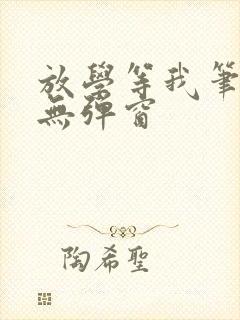 放學等我筆
無彈窗
陶希聖